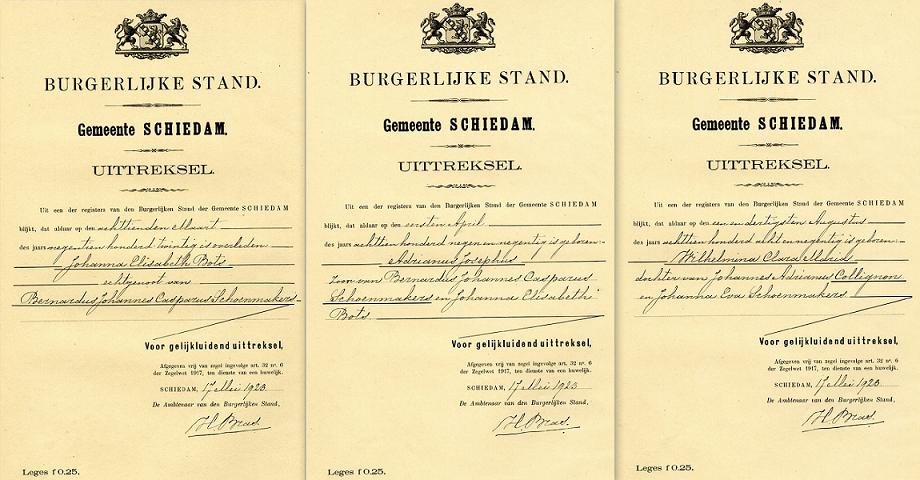 BURGERLIJKE STAND.
Gemeente SCHIEDAM.
UITTREKSEL.
Uit een der registers van den Burgerlijken Stand der Gemeente SCHIEDAM
blijkt, dat aldaar op den achttienden Maart
des jaars negentien honderd twintig is overleden
Johanna Elisabeth Bots
echtgenoot van
Bernardus Johannes Casparus Schoenmakers
Voor gelijkluidend uittreksel,
Afgegeven vrij van zegel ingevolge art. 32 no. 6
der Zegelwet 1917, ten dienste van een huwelijk.
SCHIEDAM, 17 Mei 1923
De Ambtenaar van den Burgerlijken Stand,
Leges f 0.25.
BURGERLIJKE STAND.
Gemeente SCHIEDAM.
UITTREKSEL.
Uit een der registers van den Burgerlijken Stand der Gemeente SCHIEDAM
blijkt, dat aldaar op den eersten April
des jaars achttien honderd negen en negentig is geboren
Adrianus Josephus
zoon van Bernardus Johannes Casparus
Schoenmakers en Johanna Elisabeth
Bots
Voor gelijkluidend uittreksel,
Afgegeven vrij van zegel ingevolge art. 32 no. 6
der Zegelwet 1917, ten dienste van een huwelijk.
SCHIEDAM, 17 Mei 1923
De Ambtenaar van den Burgerlijken Stand,
Leges f 0.25.
BURGERLIJKE STAND.
Gemeente SCHIEDAM.
UITTREKSEL.
Uit een der registers van den Burgerlijken Stand der Gemeente SCHIEDAM
blijkt, dat aldaar op den een en dertigsten Augustus
des jaars achttien honderd acht en negentig is geboren
Wilhelmina Clara Maria
dochter van Johannes Adrianus Collignon
en Johanna Eva Schoenmakers
Voor gelijkluidend uittreksel,
Afgegeven vrij van zegel ingevolge art. 32 no. 6
der Zegelwet 1917, ten dienste van een huwelijk.
SCHIEDAM, 17 Mei 1923
De Ambtenaar van den Burgerlijken Stand,
Leges f 0.25.